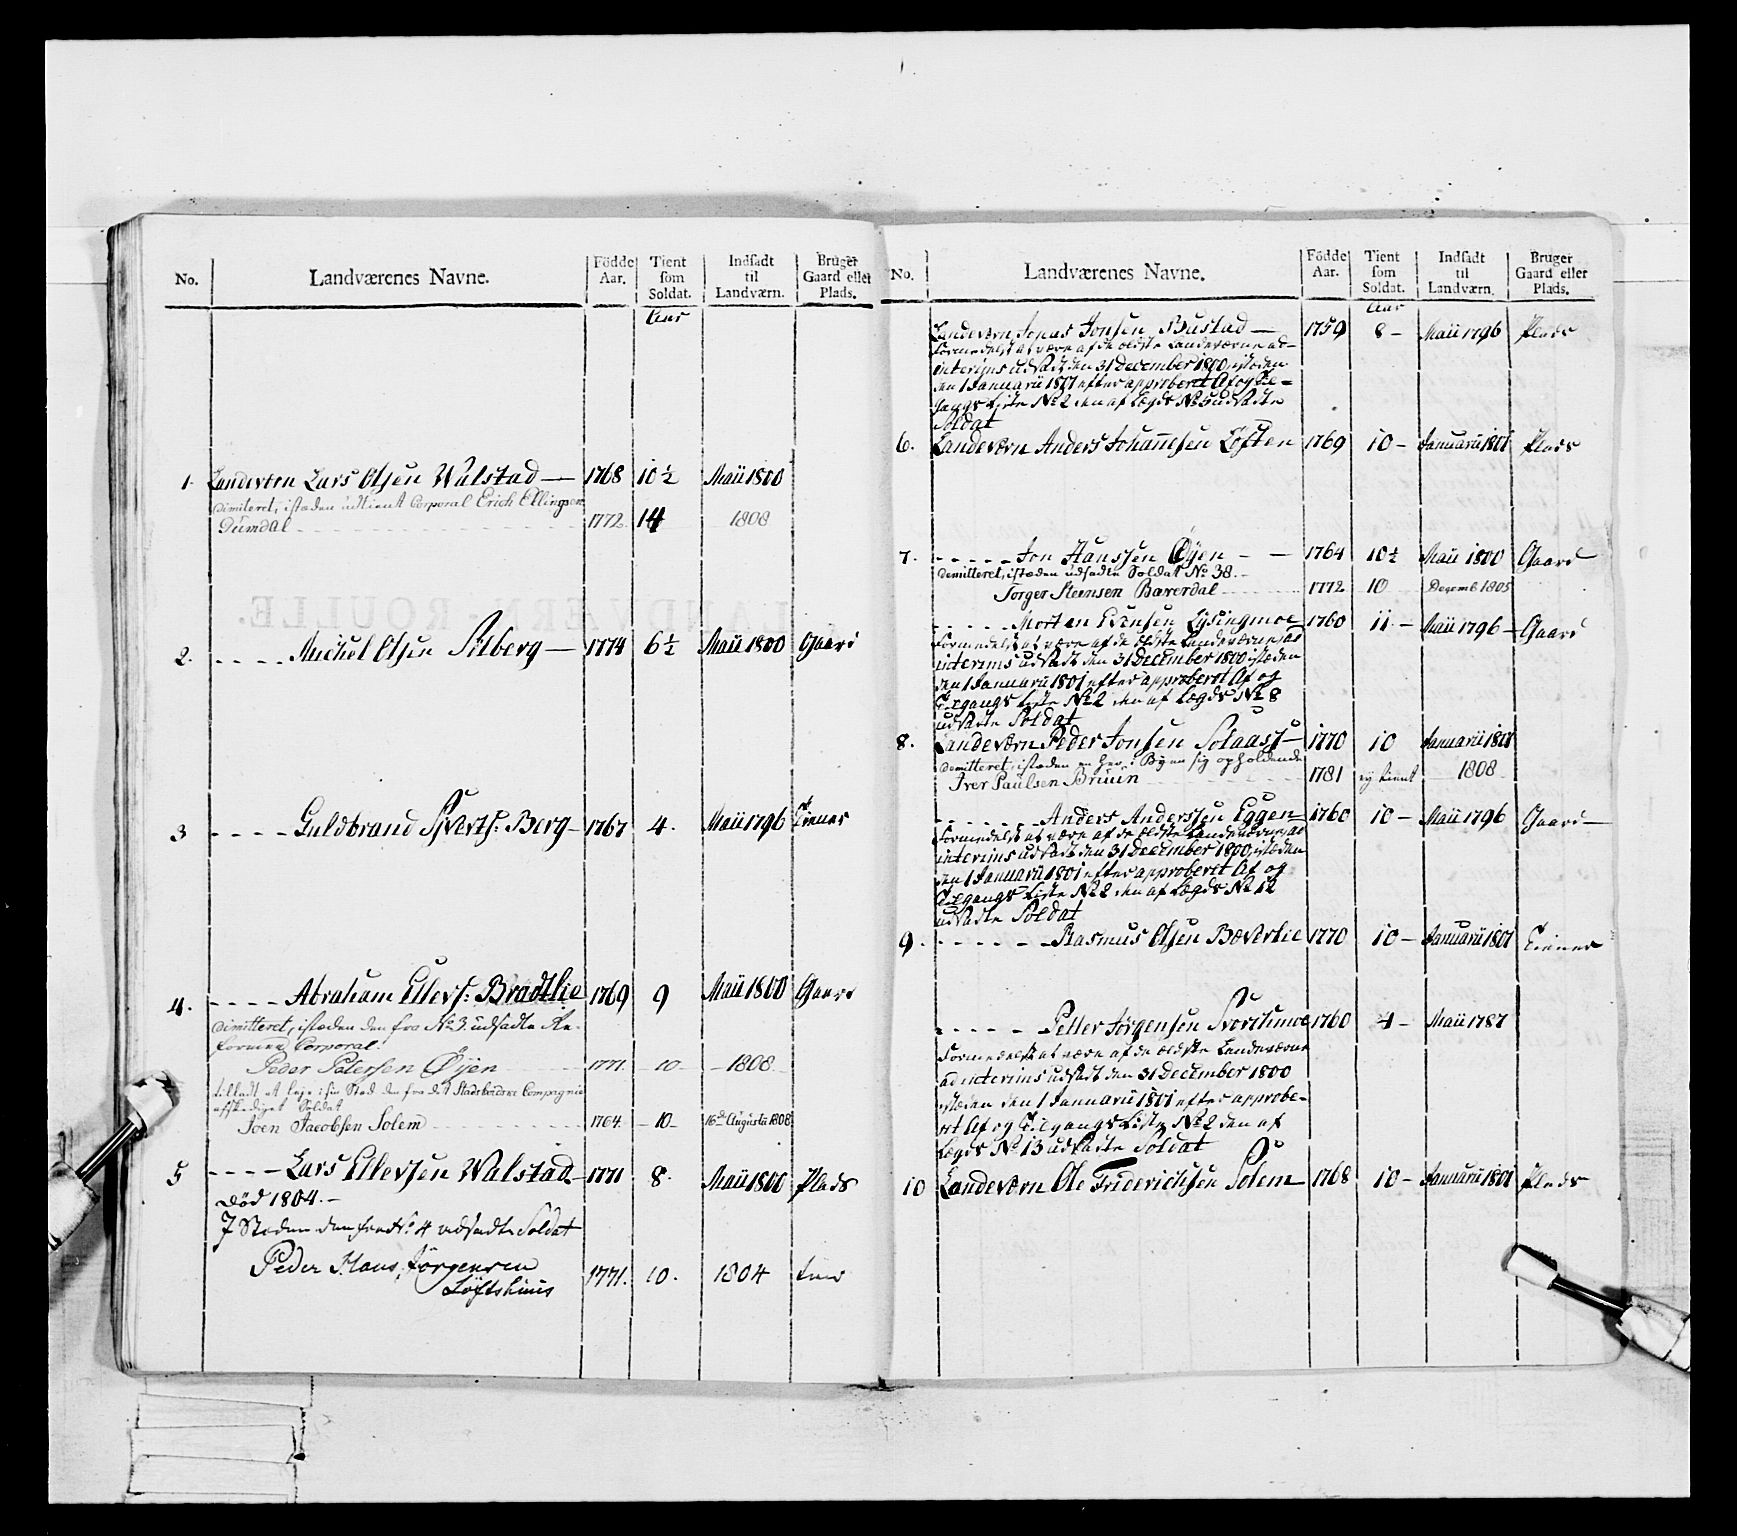 No.
Landværenes Navne.
Födde Aar.
Tient som Soldat.
Indsadt til Landværn.
Bruger Gaard eller Plads.
Aar
1. Landevern Lars Olsen Walstad — 1768 10½ Maii 1800
Dimiteret, isteden udtient Corporal Erich Ellingsen
Dumdal 1772 14 1808
2. Michel Olsen Silberg — 1774 6½ Maii 1800 Gaard
3 Guldbrand Siverts: Berg — 1767 4. Maii 1796 Tiener
4. Abraham Ellefs: Bradtlie 1769 9 Maii 1800 Gaard
Dimitteret, isteden den fra No 3 udsadte
Corporal.
Peder Petersen Öÿen 1771. 10 1808
tilladt at leje i sin Stad den fra det Compagnie
afskediget Soldat
Joen Jacobsen Solem 1764 10 16de Augusti 1808
5 Lars Ellevsen Walstad 1771 8. Maii 1800 Plads
Död 1804. —
I Steden den fra No 4 udsadte Soldat
Peder Hans Jörgensen
Löftshuus 1771. 10. 1804
No.
Landværenes Navne.
Födde Aar.
Tient som Soldat.
Indsadt til Landværn.
Bruger Gaard eller Plads.
Aar
Landeværn Jonas Jonsen Bustad — 1759 8 — Maii 1796 Plads
Formedelst at være af de ældste Landeværne ad
interims udsadt den 31 December 1800, isteden
den 1 Januarii 1801 efter approberet Af og Til=
gangs Liste No 2 den af Lægds No 5 udsadte
Soldat
6. Landeværn Anders Johannesen Löften 1769 10 — Januarii 1801 Plads
7. Jon Hanssen Öÿen — 1764 10½ Maii 1800 Gaard
Demitteret, isteden udsadte Soldat No 38.
Torger Steensen Bæverdal 1772 10 Decemb 1805
Morten Evensen Lysingmoe 1760 11 — Maii 1796 — Gaard
Formedelst at være af de ældste Landeværne, ad
interims udsadt den 31 December 1800 isteden
den 1 Januarii 1801 efter approberet Af og
Tilgangs Liste No 2 den af Lægds No 8
udsadte Soldat
8. Landeværn Peder Jonsen Solaas — 1770 10 Januarii 1801
Demitteret, isteden en her i Byen sig opholdende
Iver Paulsen Bruun 1781 ej tient 1808
Anders Anderssen Eggen 1760 10 — Maii 1796 Gaard —
Formedelst at være af de ældste Landeværne, ad
interims udsadt den 31 December 1800, isteden
den 1 Januarii 1801 efter approberet Af og
Tilgangs Liste No 2 den af Lægds No 12
udsadte Soldat
9. Rasmus Olsen Bæverlie 1770 10 — Januarii 1801 Tiener
Petter Jörgensen Svortsmoe 1760 4 — Maii 1787
Formedelst at være af de ældste Landeværne
ad interims udsadt den 31 December 1800
isteden den 1 Januarii 1801 efter approbe-
ret Af og Tilgangs Liste No 2 den af
Lægds No 13 udsadte Soldat
10 Landeværn Ole Friderichsen Solem 1768 10 — Januarii 1801 Plads